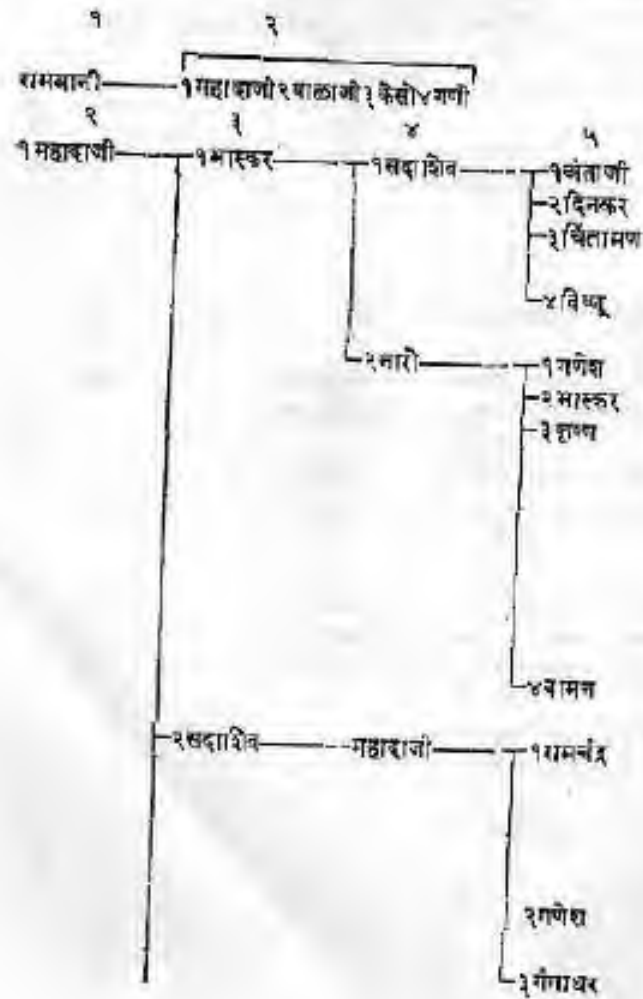 १ २
रामबाजी १ महादाजी २ बाळाजी ३ केसो ४ गणो
२ ३ ४ ५
१ महादाजी १ भास्कर १ सदाशिव १ अंताजी
२ दिनकर
३ चिंतामण
४ विष्णू
२ नारो १ गणेश
२ भास्कर
३ कृष्ण
४ वामन
२ सदाशिव महादाजी १ रामचंद्र
२ गणेश
३ गंगाधर